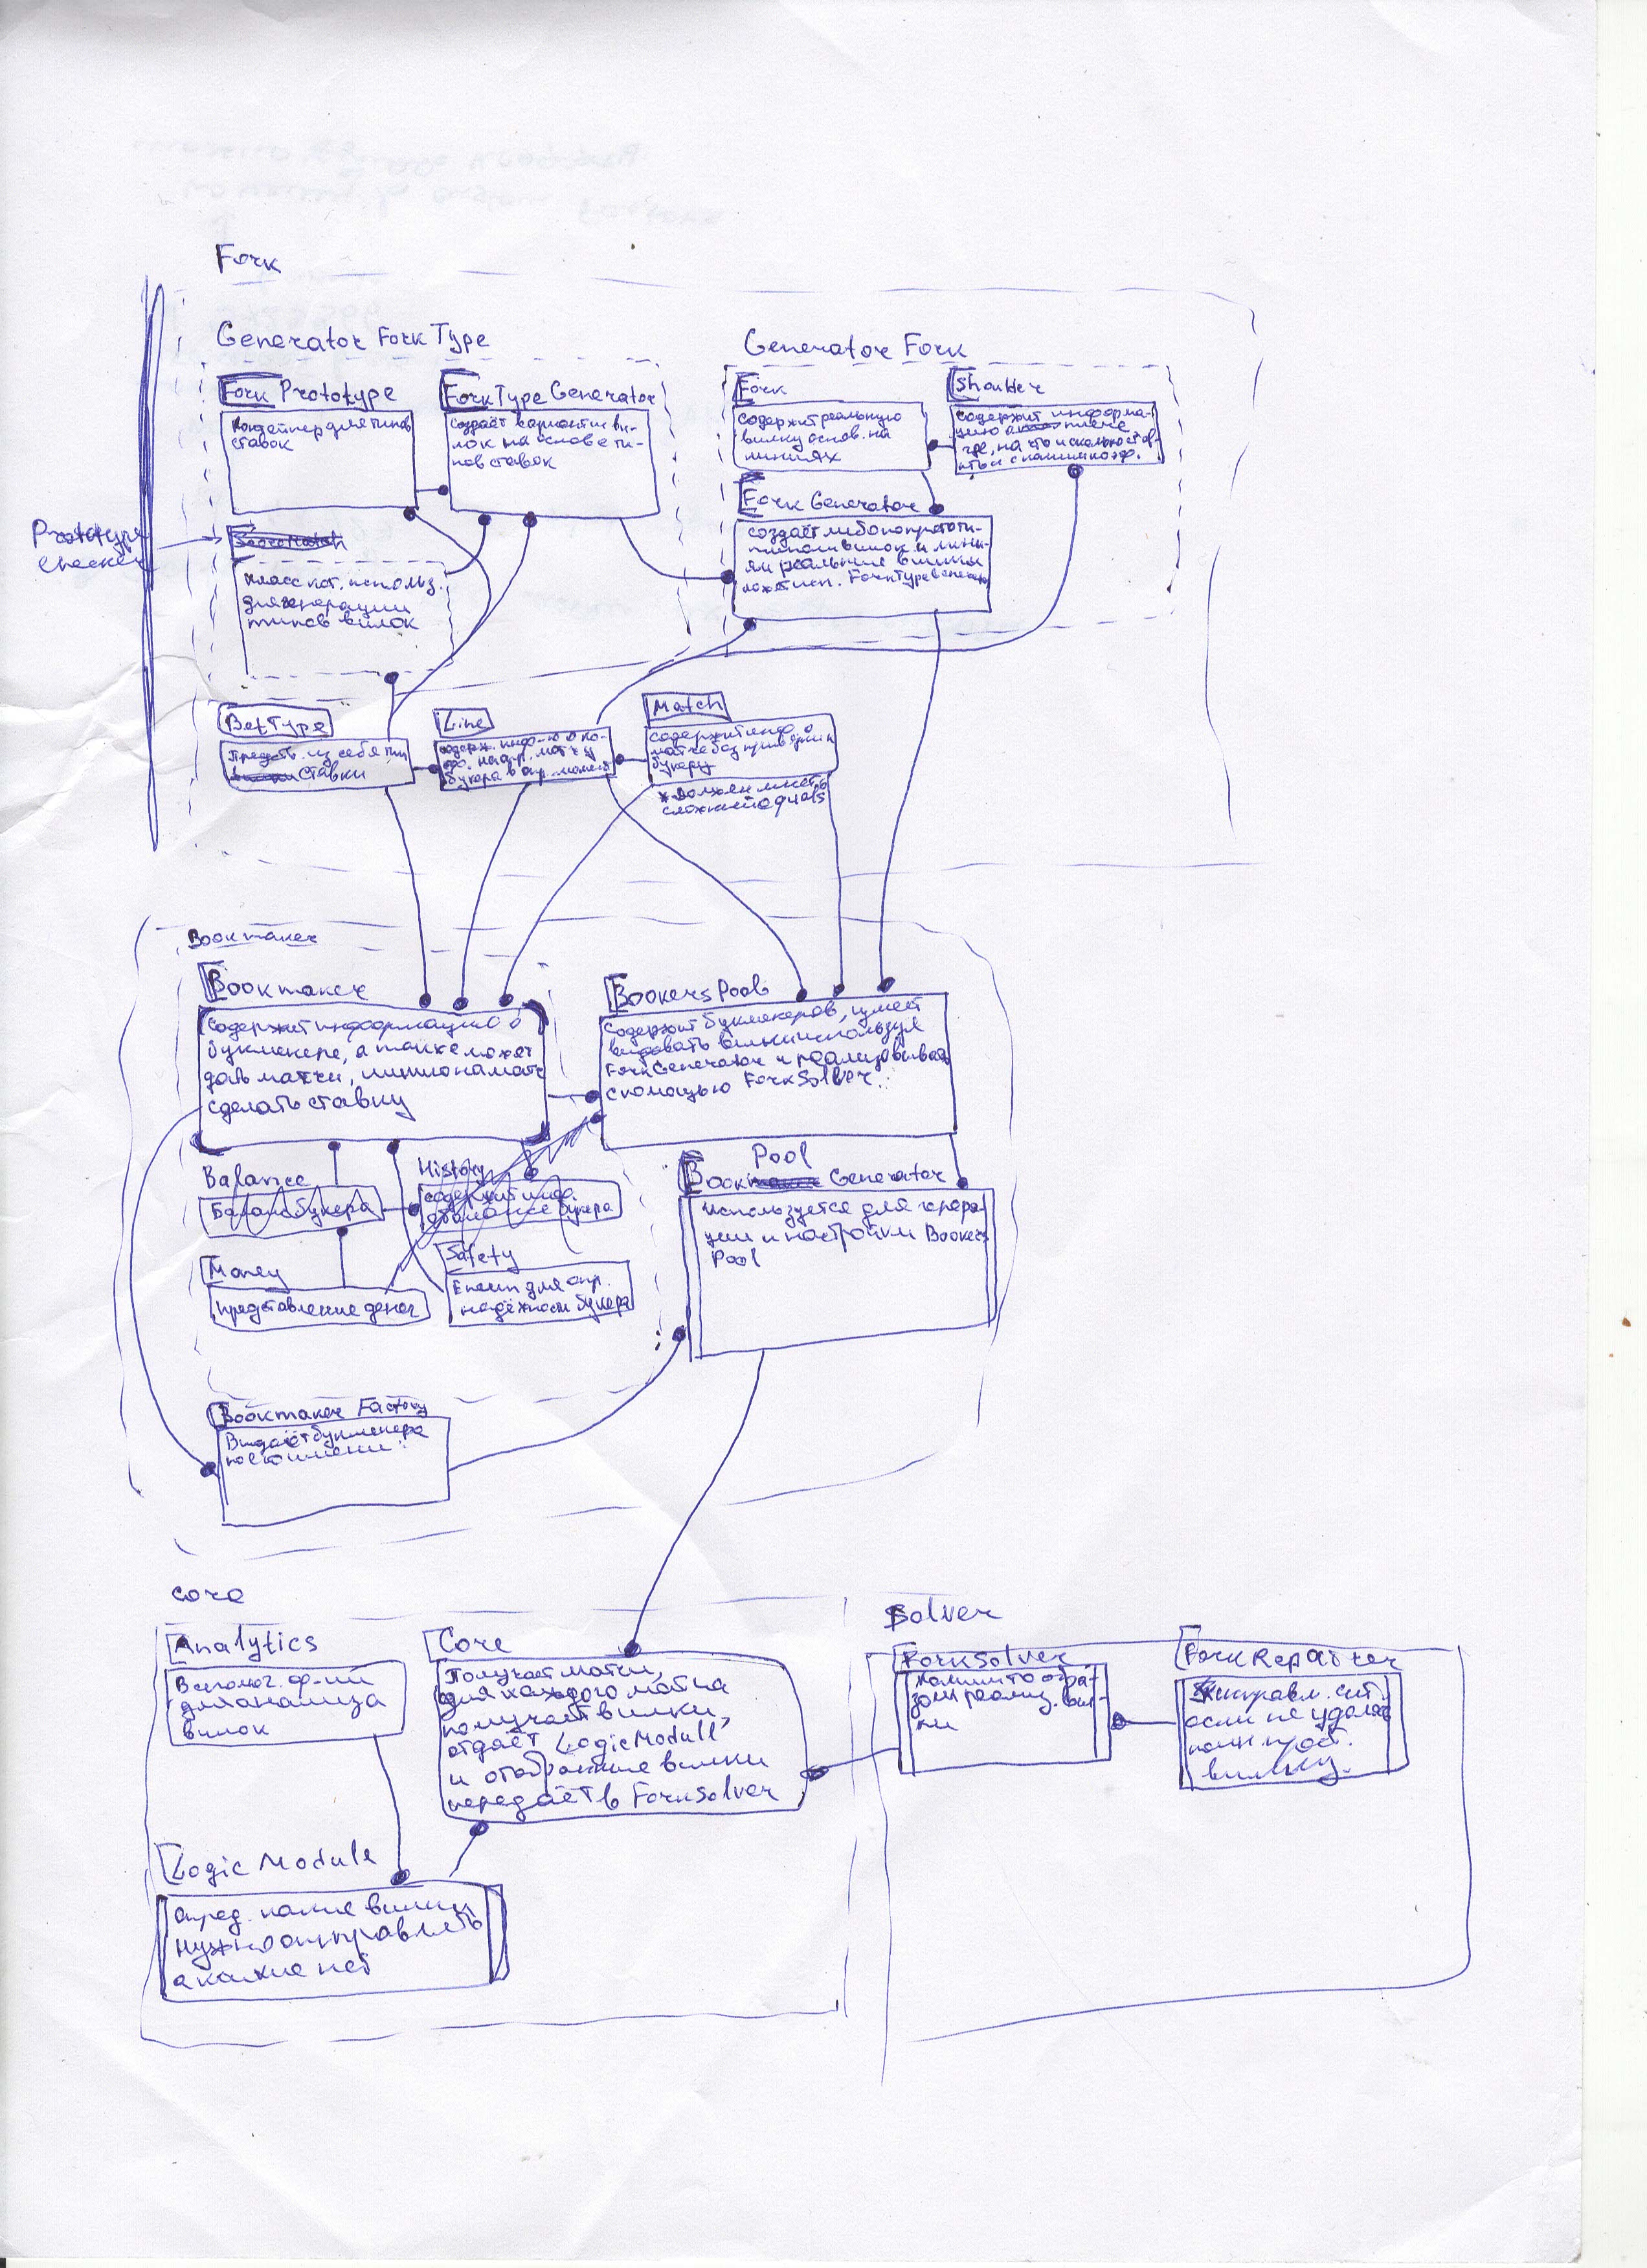 Fork
Generator Fork Type
Generator Fork
Fork Prototype
Контейнер для типов
ставок
Fork Type Generator
Создаёт варианты ви-
лок на основе ти-
пов ставок
Fork
Содержит реальную
вилку основ. на
линиях
Shoulder
содержит информа-
цию о плече
где, на что и сколько став-
ить и с каким коэф.
Fork Generator
создаёт либо по прототи-
пам вилок и лини-
ям реальные вилки
может исп. ForkTypeGenerator
Prototype
checker
класс кот. использ.
для генерации
типов вилок
BetType
Предств. из себя тип
ставки
Line
содерж. инфо-ю о ко-
эф. на опр. матч у
букера в опр. момент
Match
содержит инф. о
матче без привязки к
букеру
* Должен иметь
сложный equals
Bookmaker
Bookmaker
Содержит информацию о
букмекере, а также может
дать матчи, линии на матч
сделать ставку
BookersPool
Содержит букмекеров, умеет
выдавать вилки используя
ForkGenerator и реализовывать
с помощью ForkSolver
Balance
Баланс букера
History
содержит инф.
о балансе букера
Money
представление денег
Safety
Enum для опр.
надёжности букера
Pool
Book Generator
Используется для генера-
ции и настройки Bookers
Pool
Bookmaker Factory
Выдаёт букмекера
по его имени
core
Analytics
Вспомог. ф-ии
для анализа
вилок
Core
Получает матчи,
для каждого матча
получает вилки,
отдаёт LogicModull
и отобранные вилки
передаёт в ForkSolver
Logic Module
Опред. какие вилки
нужно отправлять
а какие нет
Solver
ForkSolver
каким то обра-
зом реализ. вил-
ки
ForkRepairer
исправл. сит.
если не удалось
вилку.